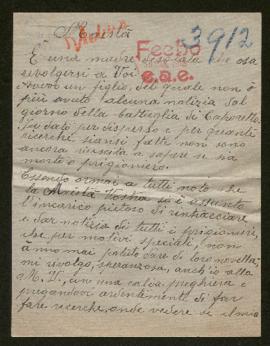 Maestà
3912
Fecho
e.a.e.
È una madre desolata che osa
rivolgersi a Voi
Avevo un figlio, del quale non ò
più avuto alcuna notizia dal
giorno della battaglia di Caporetto.
Fu dato per disperso e per quante
ricerche siansi fatte non sono
ancora riuscita a sapere se sia
morto o prigioniero.
Essendo ormai a tutti noto che
la Maestà Vostra si è assunta
l'incarico pietoso di rintracciare
e dar notizia di tutti i prigionieri,
che per motivi speciali, non
ànno mai potuto dare di loro novella;
mi rivolgo, speranzosa, anch'io alla
M. V., con una calda preghiera e
pregandovi ardentemente di far
fare ricerche, onde vedere se il mio